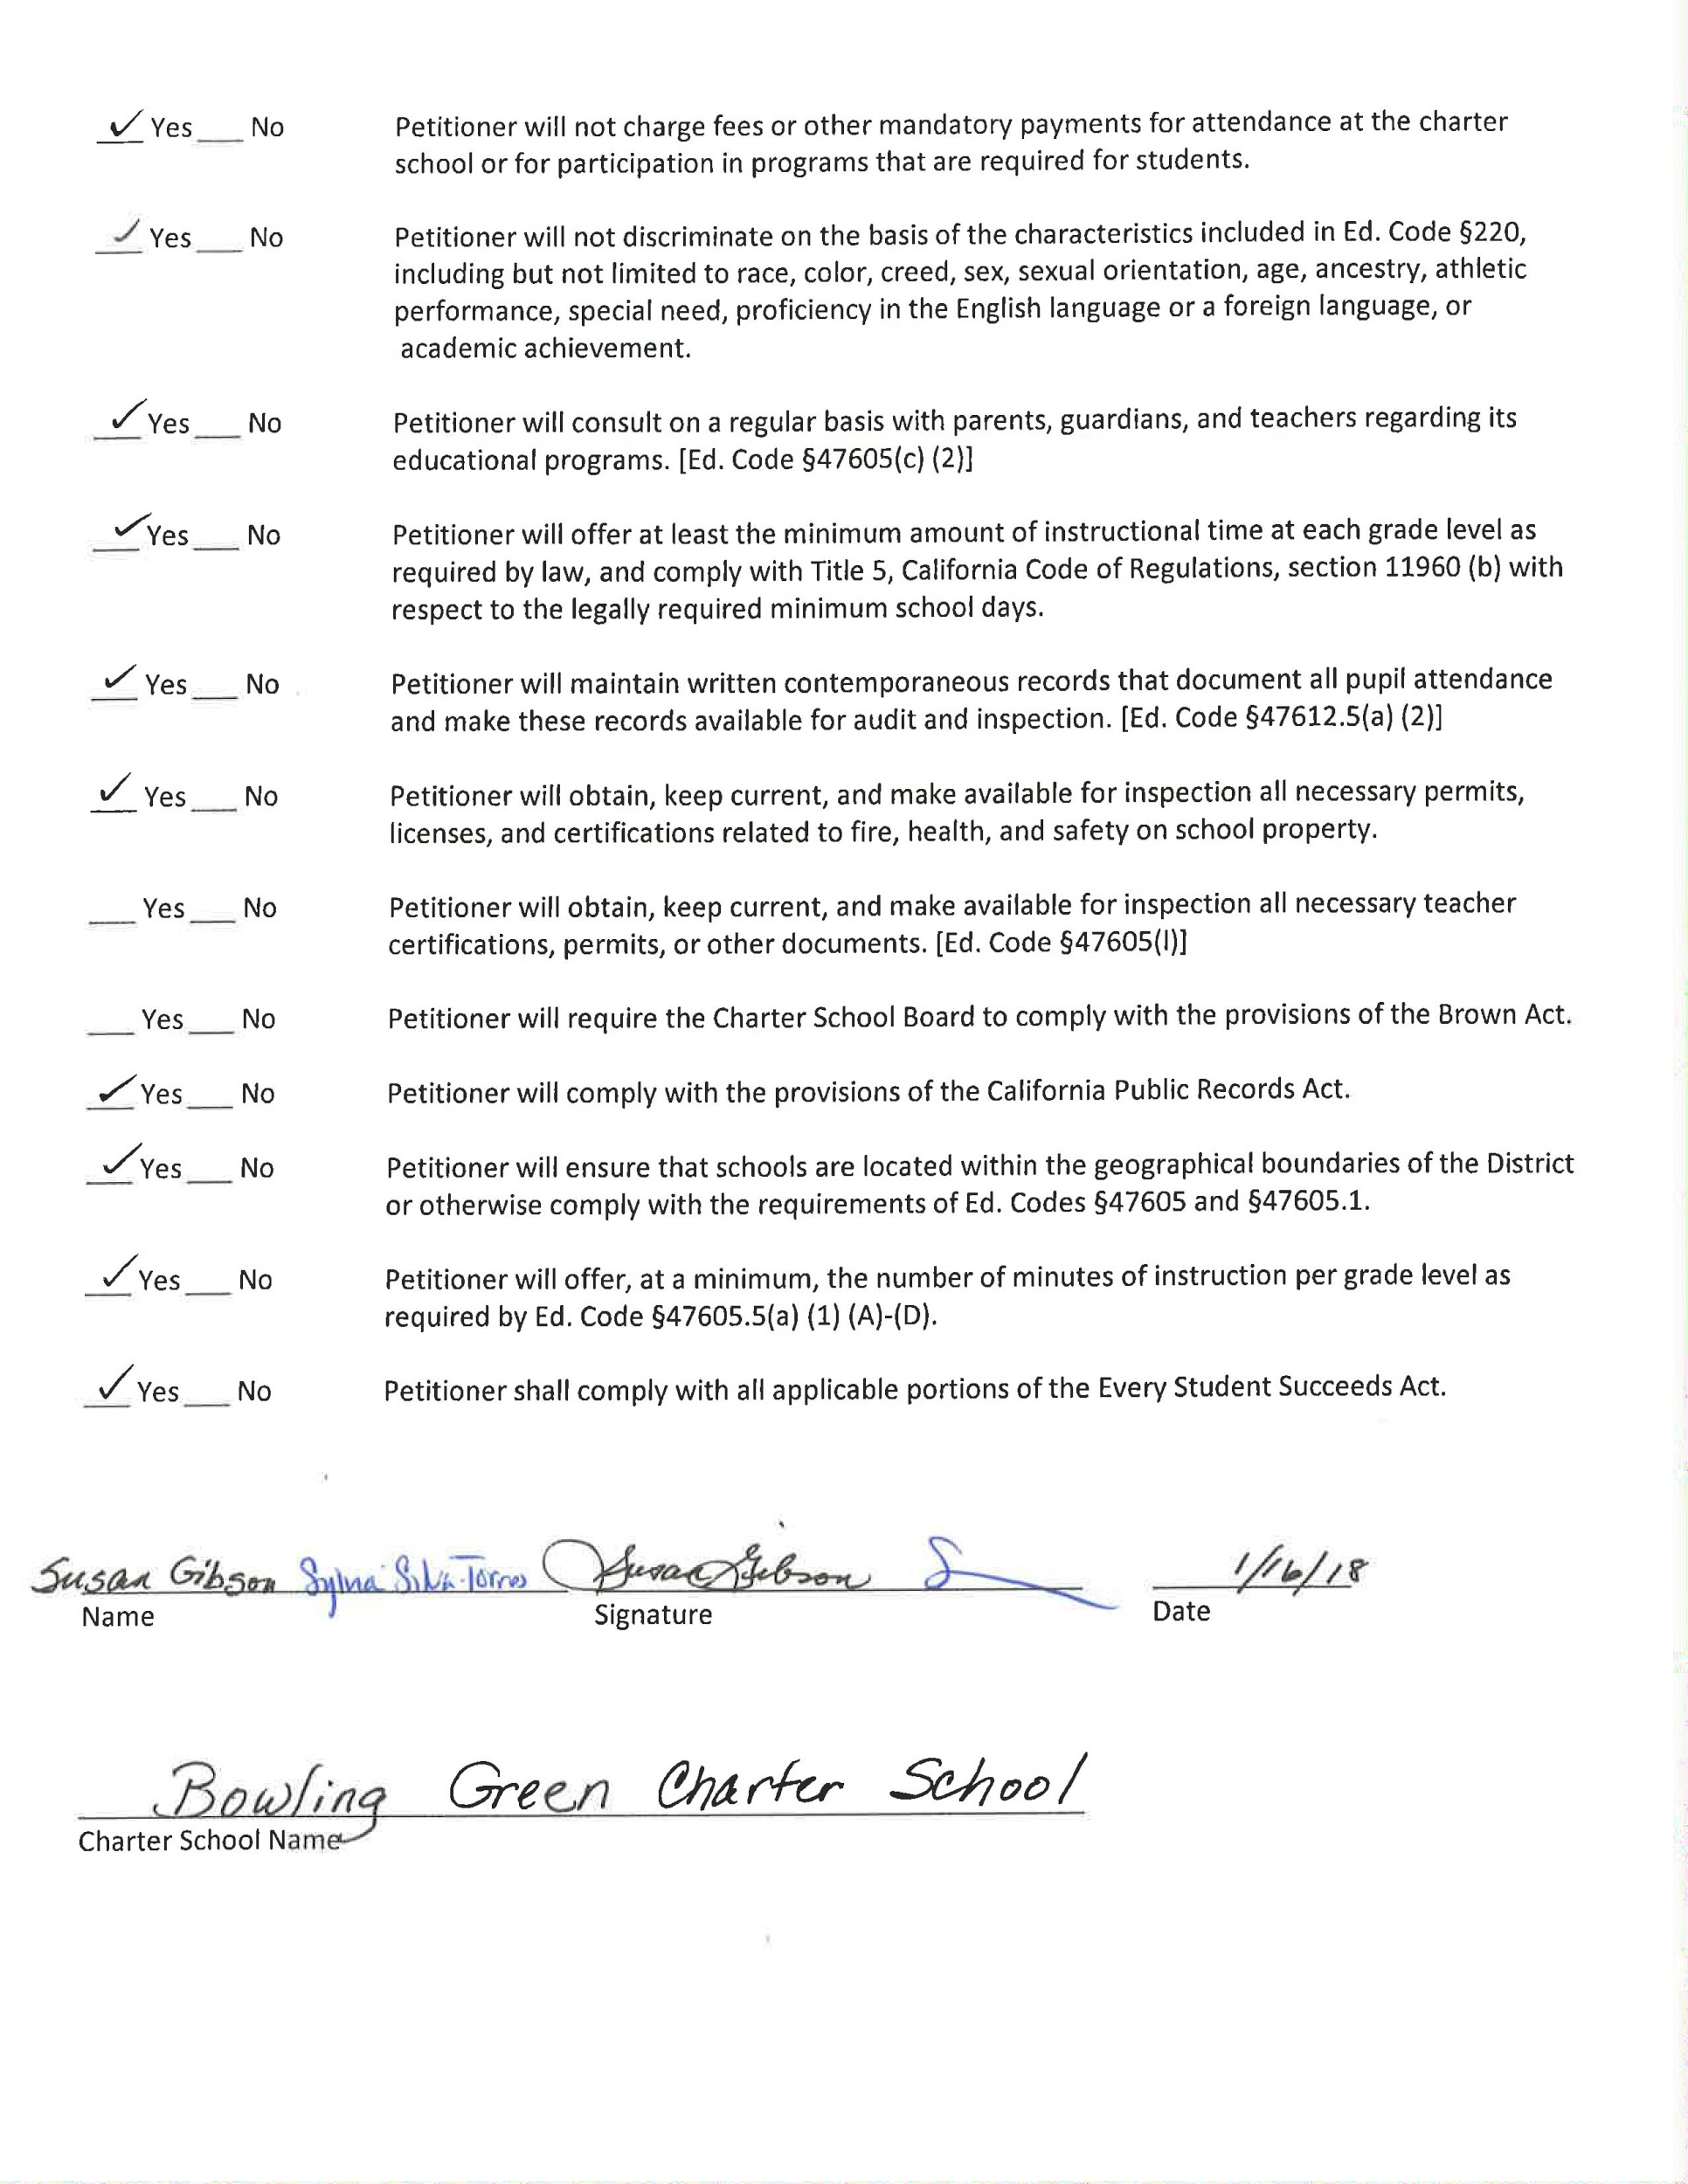 ✓ Yes___ No Petitioner will not charge fees or other mandatory payments for attendance at the charter
school or for participation in programs that are required for students.
✓ Yes___ No Petitioner will not discriminate on the basis of the characteristics included in Ed. Code §220,
including but not limited to race, color, creed, sex, sexual orientation, age, ancestry, athletic
performance, special need, proficiency in the English language or a foreign language, or
academic achievement.
✓ Yes___ No Petitioner will consult on a regular basis with parents, guardians, and teachers regarding its
educational programs. [Ed. Code §47605(c) (2)]
✓ Yes___ No Petitioner will offer at least the minimum amount of instructional time at each grade level as
required by law, and comply with Title 5, California Code of Regulations, section 11960 (b) with
respect to the legally required minimum school days.
✓ Yes___ No Petitioner will maintain written contemporaneous records that document all pupil attendance
and make these records available for audit and inspection. [Ed. Code §47612.5(a) (2)]
✓ Yes___ No Petitioner will obtain, keep current, and make available for inspection all necessary permits,
licenses, and certifications related to fire, health, and safety on school property.
___ Yes___ No Petitioner will obtain, keep current, and make available for inspection all necessary teacher
certifications, permits, or other documents. [Ed. Code §47605(l)]
___ Yes___ No Petitioner will require the Charter School Board to comply with the provisions of the Brown Act.
✓ Yes___ No Petitioner will comply with the provisions of the California Public Records Act.
✓ Yes___ No Petitioner will ensure that schools are located within the geographical boundaries of the District
or otherwise comply with the requirements of Ed. Codes §47605 and §47605.1.
✓ Yes___ No Petitioner will offer, at a minimum, the number of minutes of instruction per grade level as
required by Ed. Code §47605.5(a) (1) (A)-(D).
✓ Yes___ No Petitioner shall comply with all applicable portions of the Every Student Succeeds Act.
Susan Gibson Sylvia Silva-Torres Susan Gibson 1/16/18
Name Signature Date
Bowling Green Charter School
Charter School Name